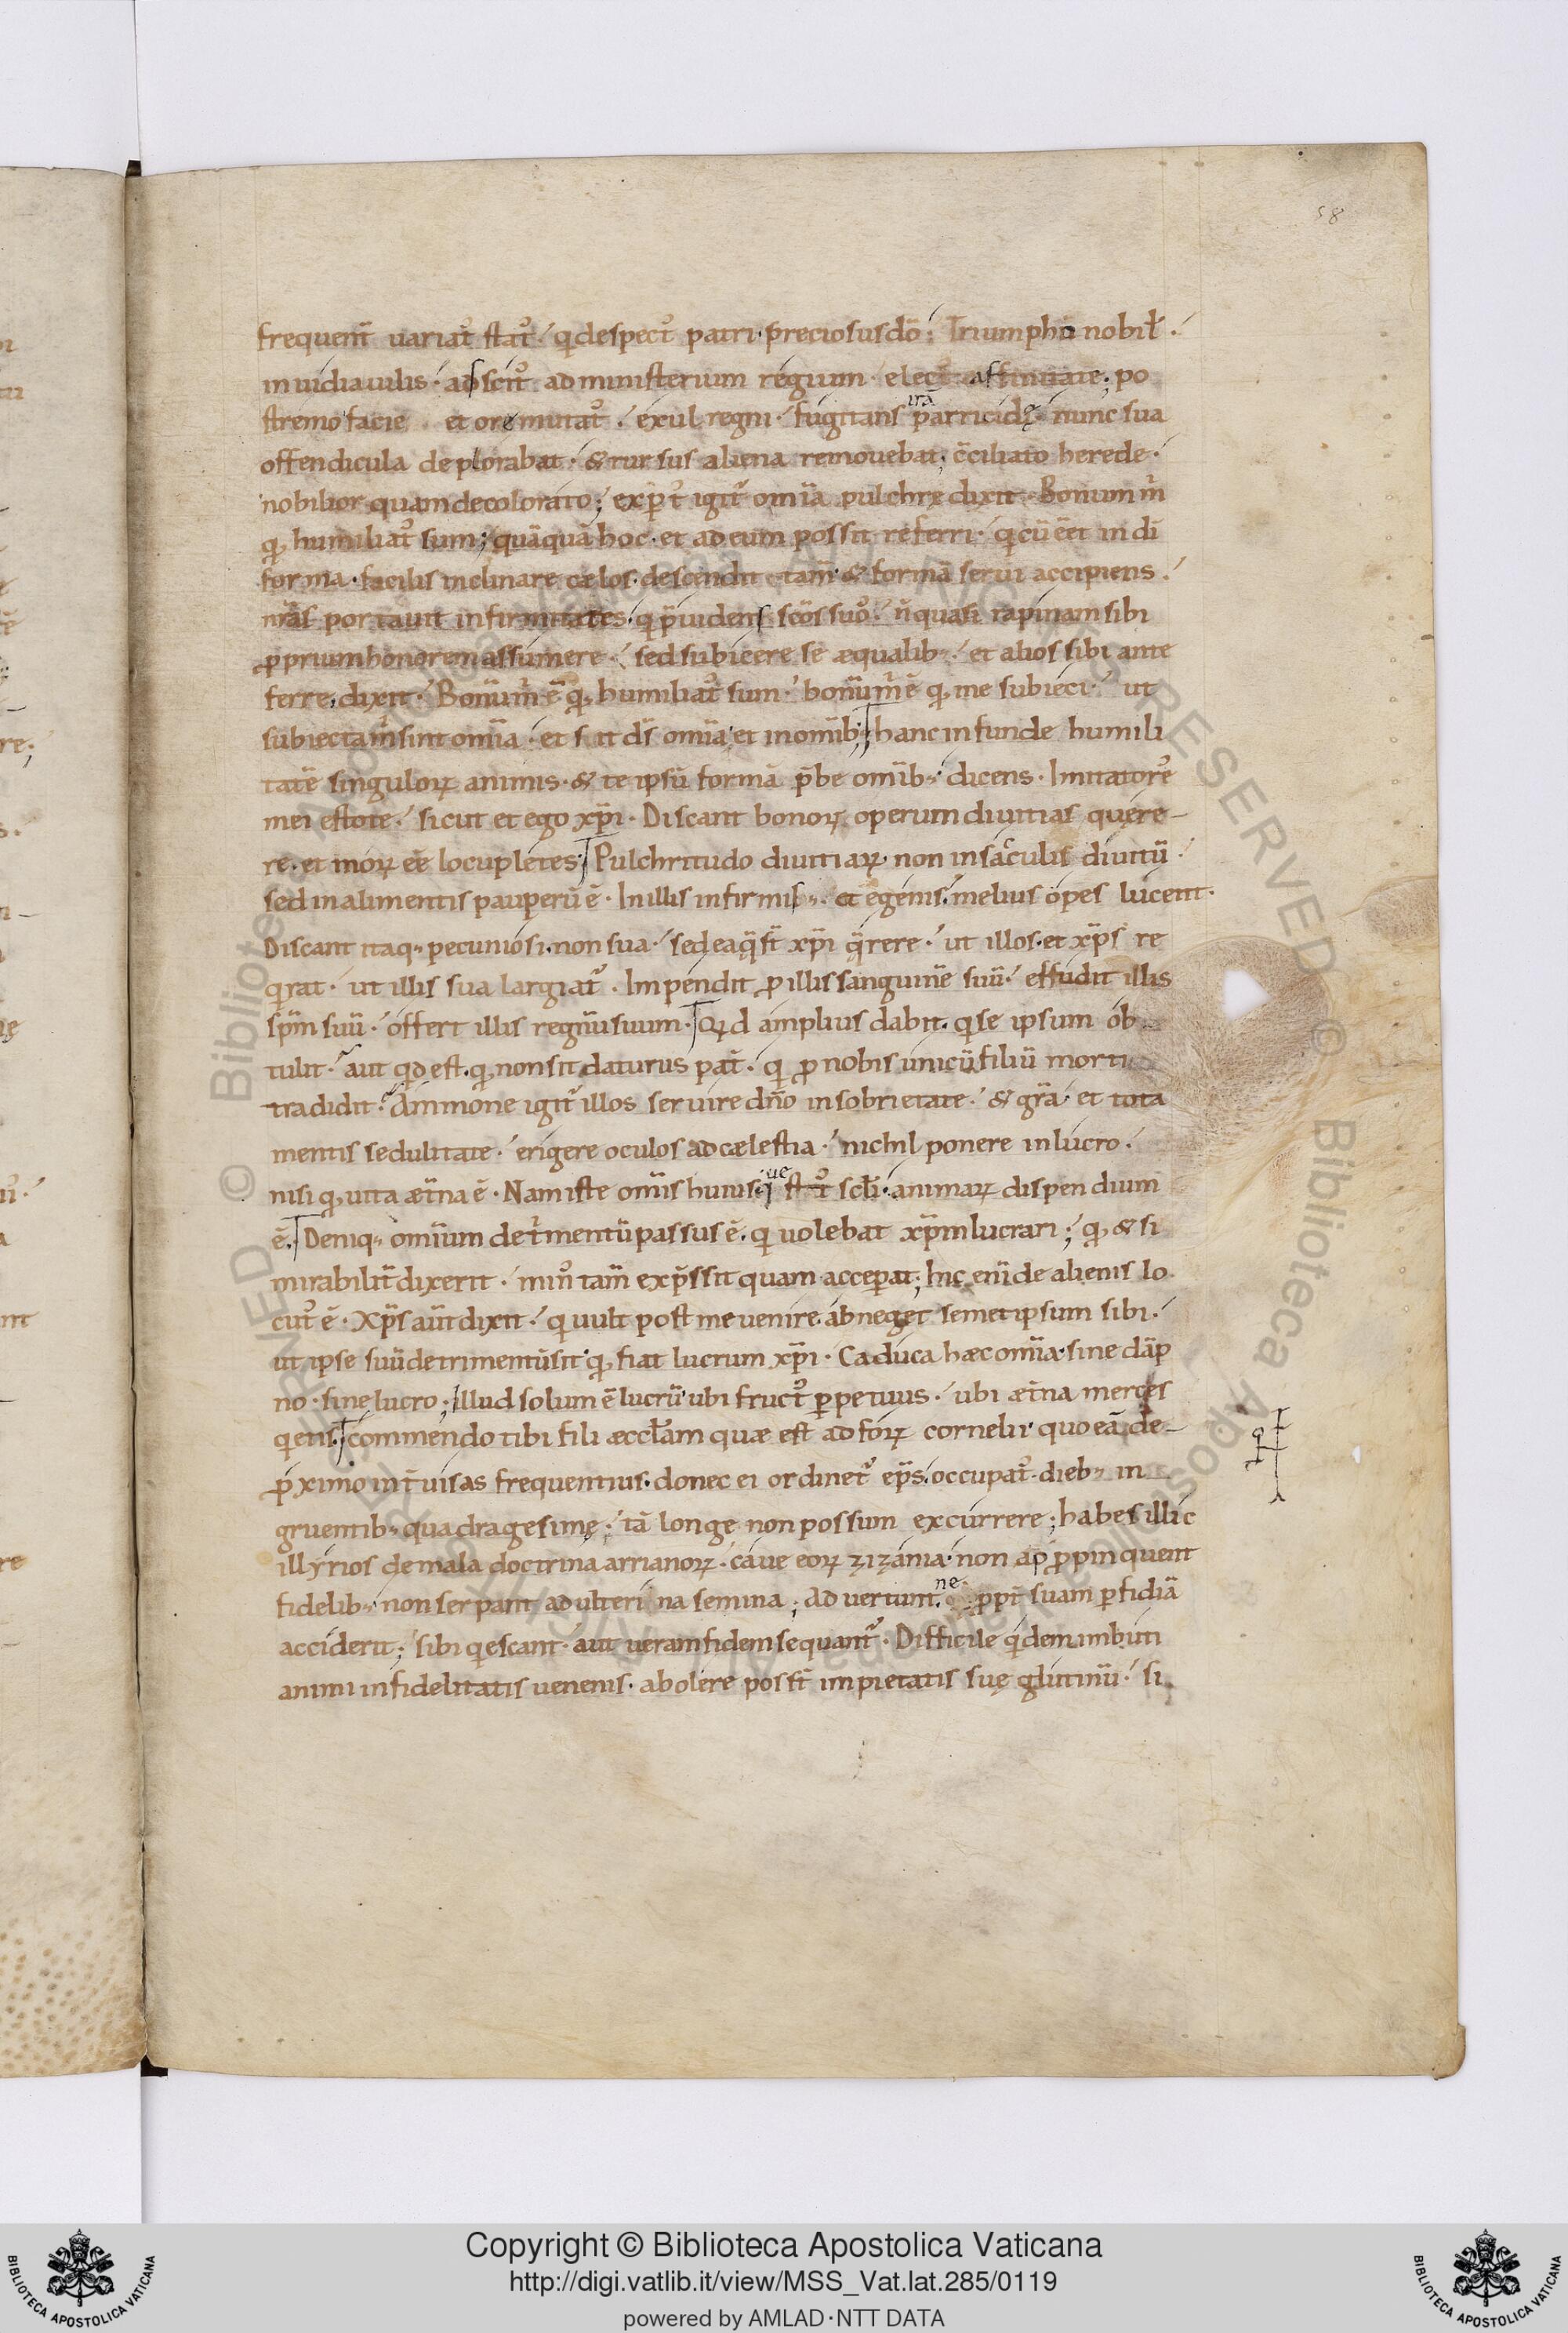 58
frequent̄ uariat᷒ stat᷒ · q̇ despect᷒ patri · preciosus dō ; Triumpho nobil̄ ·
inuidia uilis · adscit᷒ ad ministerium regium · elect᷒ affinitate ; po
stremo facie et ore mutat᷒ · exul regni · fugitans parricidę · nunc sua
offendicula deplorabat · & rursus aliena remouebat ; c̄ciliato herede ·
nobilior quam decolorato ; exp̄t᷒ igit᷑ om̄ia pulchrę dixit · Bonum m̄
qđ humiliat᷒ sum ; quāquā hoc · et ad eum possit referri · q̇ cū eēt in dī
forma · facilis inclinare cælos · descendit · tam̄ & formā serui accipiens ·
nr̄as portauit infirmitates · q̇ p̄uidens scōs suos · n̄ quasi rapinam sibi
ꝓprium honorem assumere · sed subicere se æqualib; · et alios sibi ante
ferre · dixit · Bonū m̄ ē qđ humiliat᷒ sum · bonū m̄ ē qđ me subieci · ut
subiecta m̄ sint om̄ia · et sit d̄s om̄ia · et in om̄ib; hanc infunde humili
tatē singuloꝝ animis · & te ipsū formā p̄be om̄ib; · dicens · Imitatores
mei estote · sicut et ego xp̄i · Discant bonoꝝ operum diuitias quere-
re · et moꝝ eē locupletes ; Pulchritudo diuitiaꝝ · non in sacculis diuitū ·
sed in alimentis pauperū ē · In illis infirmis · et egenis · melius opes lucent ·
Discant itaq; pecuniosi · non sua · sed ea q̄ st̄ xp̄i q̄rere · ut illos · et xp̄s re
q̇rat · ut illis sua largiat᷑ · Impendit ꝓ illis sanguinē suū · effudit illis
sp̄m suū · offert illis regnū suum · Qđ amplius dabit · q̇ se ipsum ob
tulit · aut q̇d est · qđ non sit daturus pat̄ · q̇ ꝓ nobis unicū filiū morti
tradidit · Ammone igit᷑ illos seruire dn̄o in sobrietate · & gr̄a · et tota
mentis sedulitate · erigere oculos ad cælestia · nichil ponere in lucro ·
nisi qđ uita æt̄na ē · Nam iste om̄is huius quęst᷒ sc̄li · animaꝝ dispendium
ē · Deniq; omium det̄mentū passus ē · q̇ uolebat xp̄m lucrari ; qđ & si
mirabilit̄ dixerit · min᷒ tam̄ exp̄ssit quam acceperat ; hic enī de alienis lo
cut᷒ ē · Xp̄s aut̄ dixit · q̇ uult post me uenire · abneget semet ipsum sibi ·
ut ipse suū detrimentū sit · qđ fiat lucrum xp̄i · Caduca hæc om̄ia · sine dāp
no · sine lucro ; illud solum ē lucrū · ubi fruct᷒ p̱petuus · ubi æt̄na merces
q̇etis · commendo tibi fili æccl̄am quæ est ad foꝝ cornelii · quo eā de-
ꝓximo int̄uisas frequentius · donec ei ordinet᷑ ep̄s · occupat᷒ · dieb; in
gruentib; quadragesimę · tā longe non possum excurrere ; habes illic
illyrios de mala doctrina arrianoꝝ · caue eoꝝ zizania · non apꝓpinquent
fidelib; · non serpant adulterina semina ; Aduertant · ne ꝓpt̄ suam p̱fidiā
acciderit ; sibi q̇escant · aut ueram fidem sequant᷑ · Difficile q̇dem imbuti
animi infidelitatis uenenis · abolere possт̄ impietatis suę glutinū · si
Copyright © Biblioteca Apostolica Vaticana
http://digi.vatlib.it/view/MSS_Vat.lat.285/0119
powered by AMLAD·NTT DATA
BIBLIOTECA APOSTOLICA VATICANA
BIBLIOTECA APOSTOLICA VATICANA